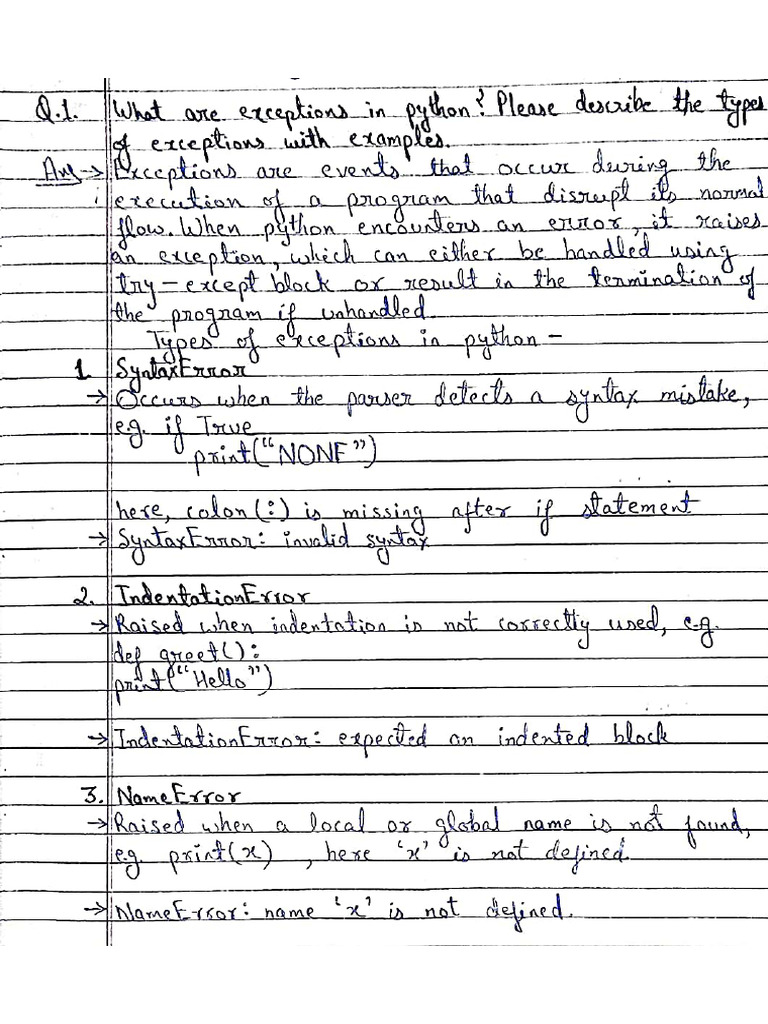 Q.1. What are exceptions in python? Please describe the types
of exceptions with examples.
Ans → Exceptions are events that occur during the
execution of a program that disrupt its normal
flow. When python encounters an error, it raises
an exception, which can either be handled using
try-except block or result in the termination of
the program if unhandled.
Types of exceptions in python -
1. SyntaxError
→ Occurs when the parser detects a syntax mistake,
e.g. if True
print("NONE")
here, colon(:) is missing after if statement
→ SyntaxError: invalid syntax
2. IndentationError
→ Raised when indentation is not correctly used, e.g.
def greet():
print("Hello")
→ IndentationError: expected an indented block
3. NameError
→ Raised when a local or global name is not found,
e.g. print(x) , here 'x' is not defined.
→ NameError: name 'x' is not defined.